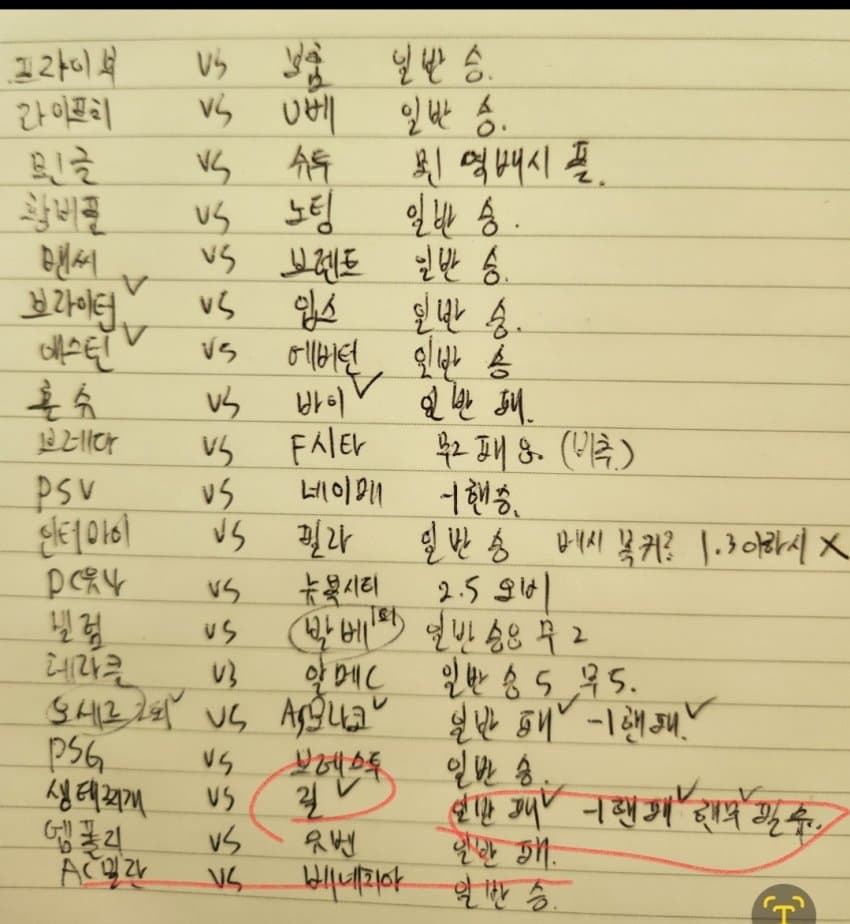 프라이부 VS 보훔 일반 승.
라이프치 VS U베 일반 승.
묀글 VS 슈투 묀 역배시 플.
황버풀 VS 노팅 일반 승.
맨씨 VS 브렌트 일반 승.
브라이턴 VS 입스 일반 승.
애스턴 VS 에버턴 일반 승
홀슈 VS 바이 일반 패.
브레다 VS F시타 무2 패8. (비추.)
PSV VS 네이메 -1핸승.
인터마이 VS 필라 일반 승 메시 복귀? 1.3이하시 X
DC유나 VS 뉴욕시티 2.5 오버
빌럼 VS 발베 1회 일반 승8 무2
헤라클 VS 알메C 일반 승5 무5.
오세르 2회 VS AS모나코 일반 패 -1핸패.
PSG VS 브레스투 일반 승.
생테티개 VS 릴 일반 패 -1핸패 핸무 필승.
엠폴리 VS 유벤 일반 패.
AC밀란 VS 베네치아 일반 승.